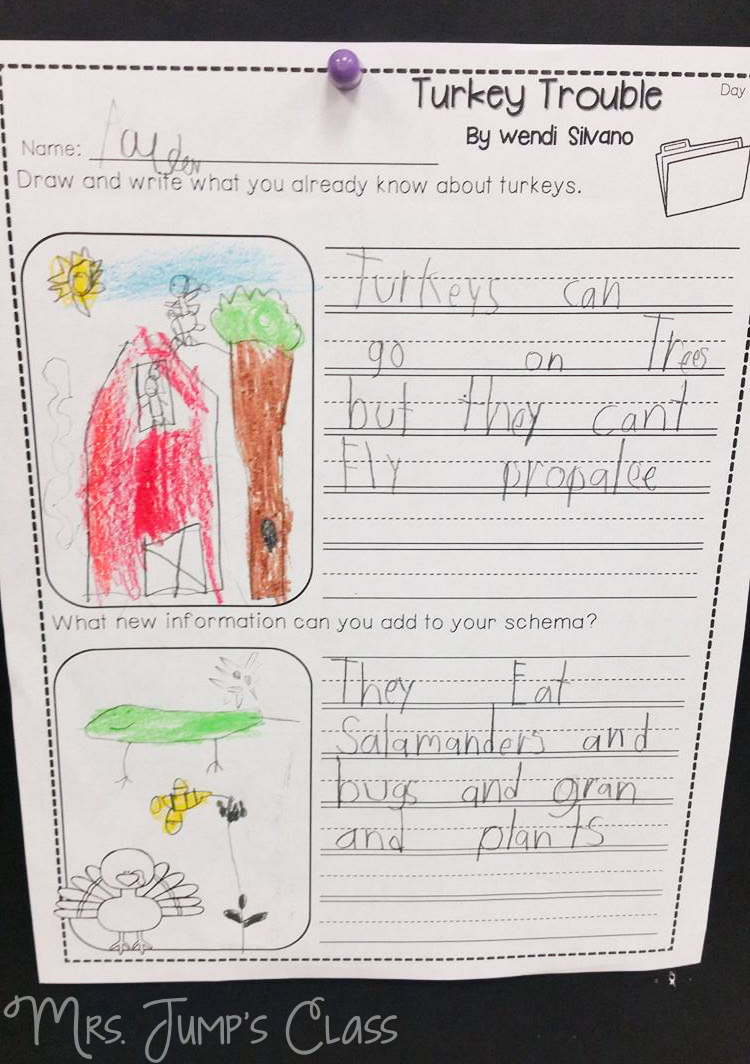 Turkey Trouble
Day
By Wendi Silvano
Name:
Draw and write what you already know about turkeys.
Turkeys can
go on Trees
but they cant
Fly propalee
What new information can you add to your schema?
They Eat
Salamanders and
bugs and gran
and plants
Mrs. Jump's Class